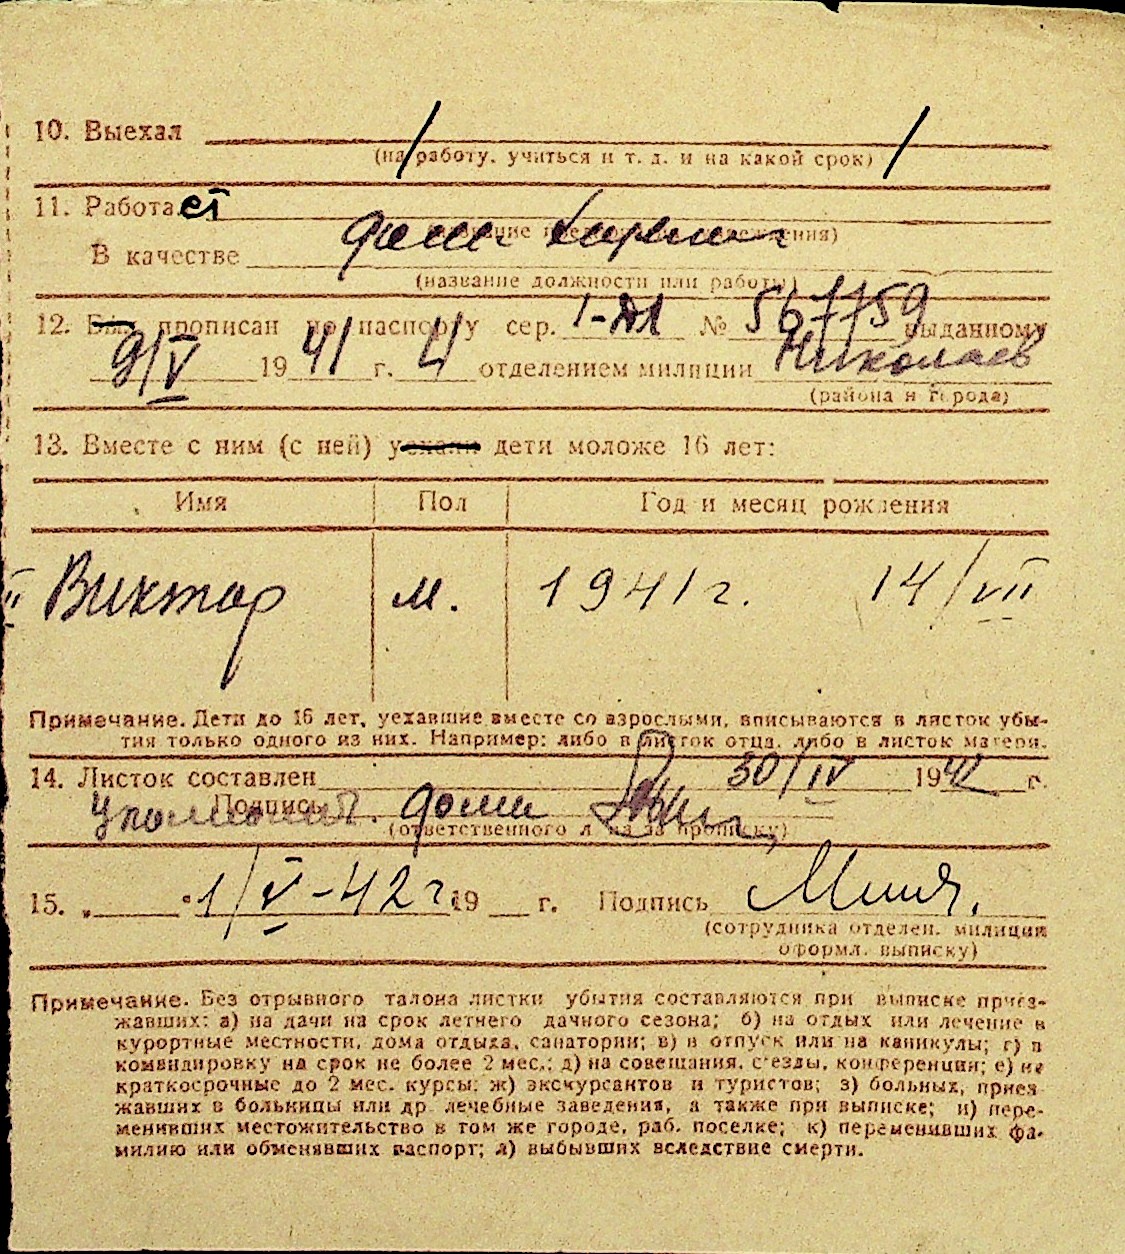 10. Выехал
(на работу, учиться и т. д. и на какой срок)
11. Работает
В качестве
(название должности или работы)
12. прописан по паспорту сер. № 567759 выданному
9/V 1941 г. 4 отделением милиции Николаев
(района и города)
13. Вместе с ним (с ней) уехали дети моложе 16 лет:
Имя Пол Год и месяц рождения
Виктор м. 1941 г. 14/VII
Примечание. Дети до 16 лет, уехавшие вместе со взрослыми, вписываются в листок убы-
тия только одного из них. Например: либо в листок отца, либо в листок матери.
14. Листок составлен 30/IV 1942 г.
Подпись дома
(ответственного лица за прописку)
15. „ “ 1/V-42 г. 19 г. Подпись
(сотрудника отделен. милиции
оформл. выписку)
Примечание. Без отрывного талона листки убытия составляются при выписке приез-
жавших: а) на дачи на срок летнего дачного сезона; б) на отдых или лечение в
курортные местности, дома отдыха, санатории; в) в отпуск или на каникулы; г) в
командировку на срок не более 2 мес.; д) на совещания, с'езды, конференции; е) на
краткосрочные до 2 мес. курсы; ж) экскурсантов и туристов; з) больных, приез
жавших в больницы или др. лечебные заведения, а также при выписке; и) пере-
менивших местожительство в том же городе, раб. поселке; к) переменивших фа-
милию или обменявших паспорт; л) выбывших вследствие смерти.